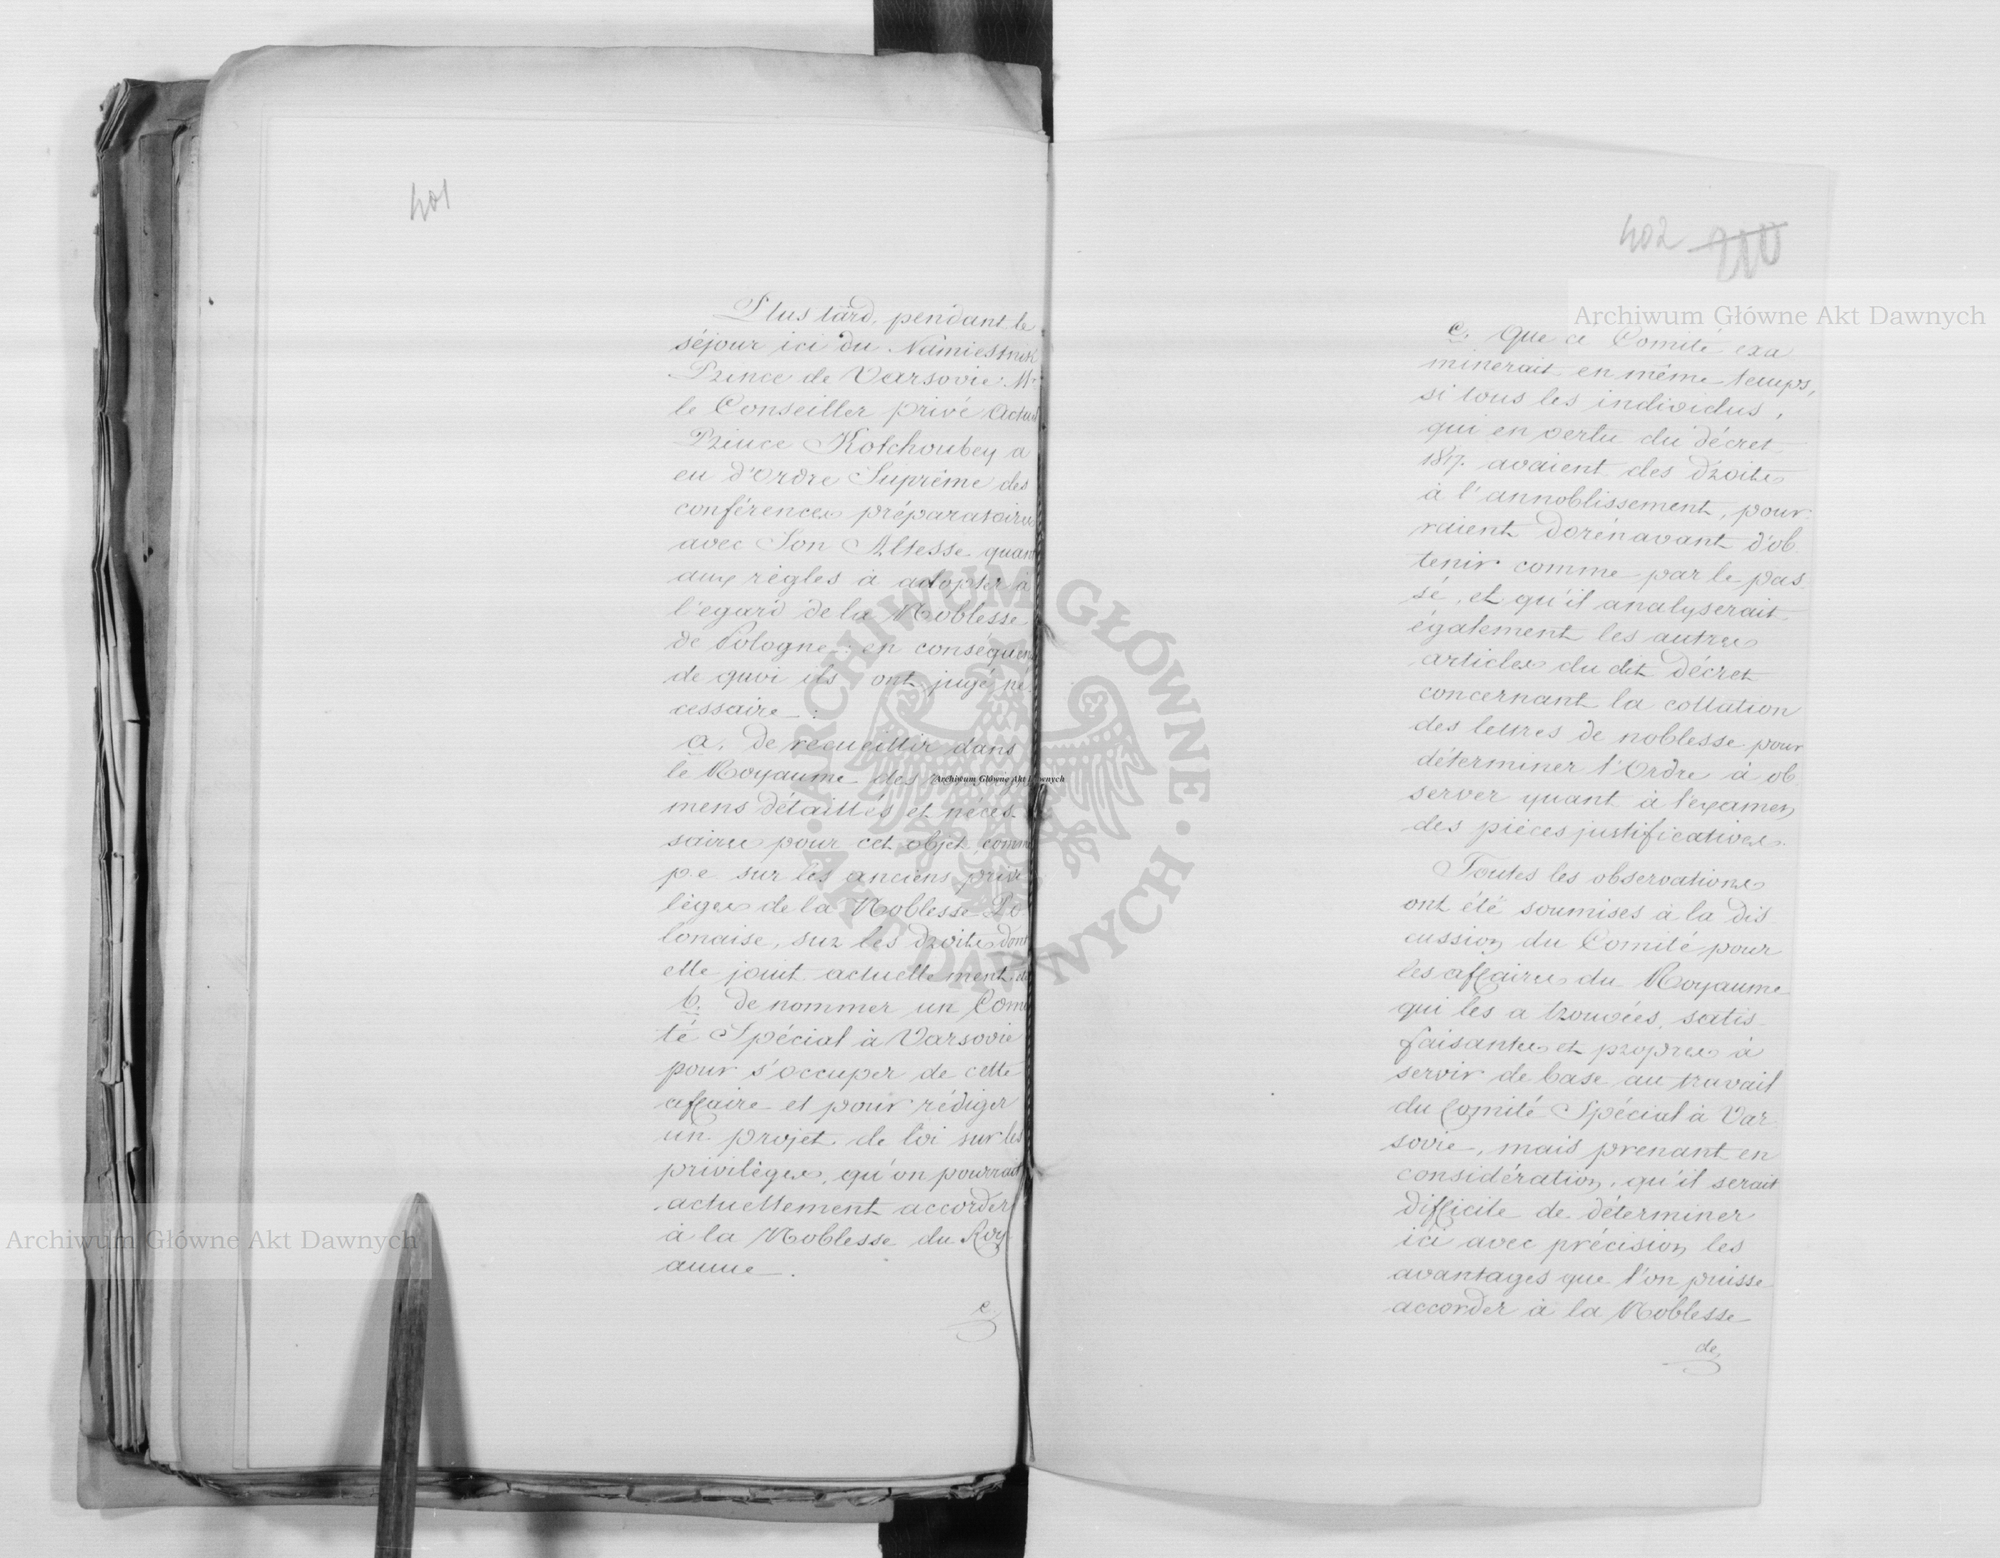 401
Plus tard, pendant le
séjour ici du Namiestnik
Prince de Varsovie Mr
le Conseiller privé Actuel
Prince Kotchoubey a
eu d'Ordre Suprême des
conférences préparatoires
avec Son Altesse quant
aux règles à adopter à
l'egard de la Noblesse
de Pologne; en conséquen
de quoi ils ont jugé né
cessaire:
a. de recueillir dans
le Royaume des renseigne
mens détaillés et néces-
saires pour cet objet, comme
p.e sur les anciens privi
lèges de la Noblesse Po
lonaise, sur les droits dont
elle jouit actuellement, et
b. de nommer un Comi
té Spécial à Varsovie
pour s'occuper de cette
affaire et pour rédiger
un projet de loi sur les
privilèges, qu'on pourrait
actuellement accorder
à la Noblesse du Roy-
aume.
c
402 210
c. que ce Comité exa
minerait en même temps,
si tous les individus,
qui en vertu du décret
1817. avaient des droits
à l'annoblissement, pour-
raient dorénavant l'ob
tenir comme par le pas
sé, et qu'il analyserait
également les autres
articles du dit décret
concernant la collation
des lettres de noblesse pour
déterminer l'Ordre à ob
server quant à l'examen
des pièces justificatives.
Toutes les observations
ont été soumises à la dis
cussion du Comité pour
les affaires du Royaume
qui les a trouvées, satis-
faisantes et propres à
servir de base au travail
du Comité Spécial à Var
sovie, mais prenant en
considération, qu'il serait
difficile de déterminer
ici avec précision les
avantages que l'on puisse
accorder à la Noblesse
de
Archiwum Główne Akt Dawnych
Archiwum Główne Akt Dawnych
Archiwum Główne Akt Dawnych
ARCHIWUM GŁÓWNE • AKT DAWNYCH •